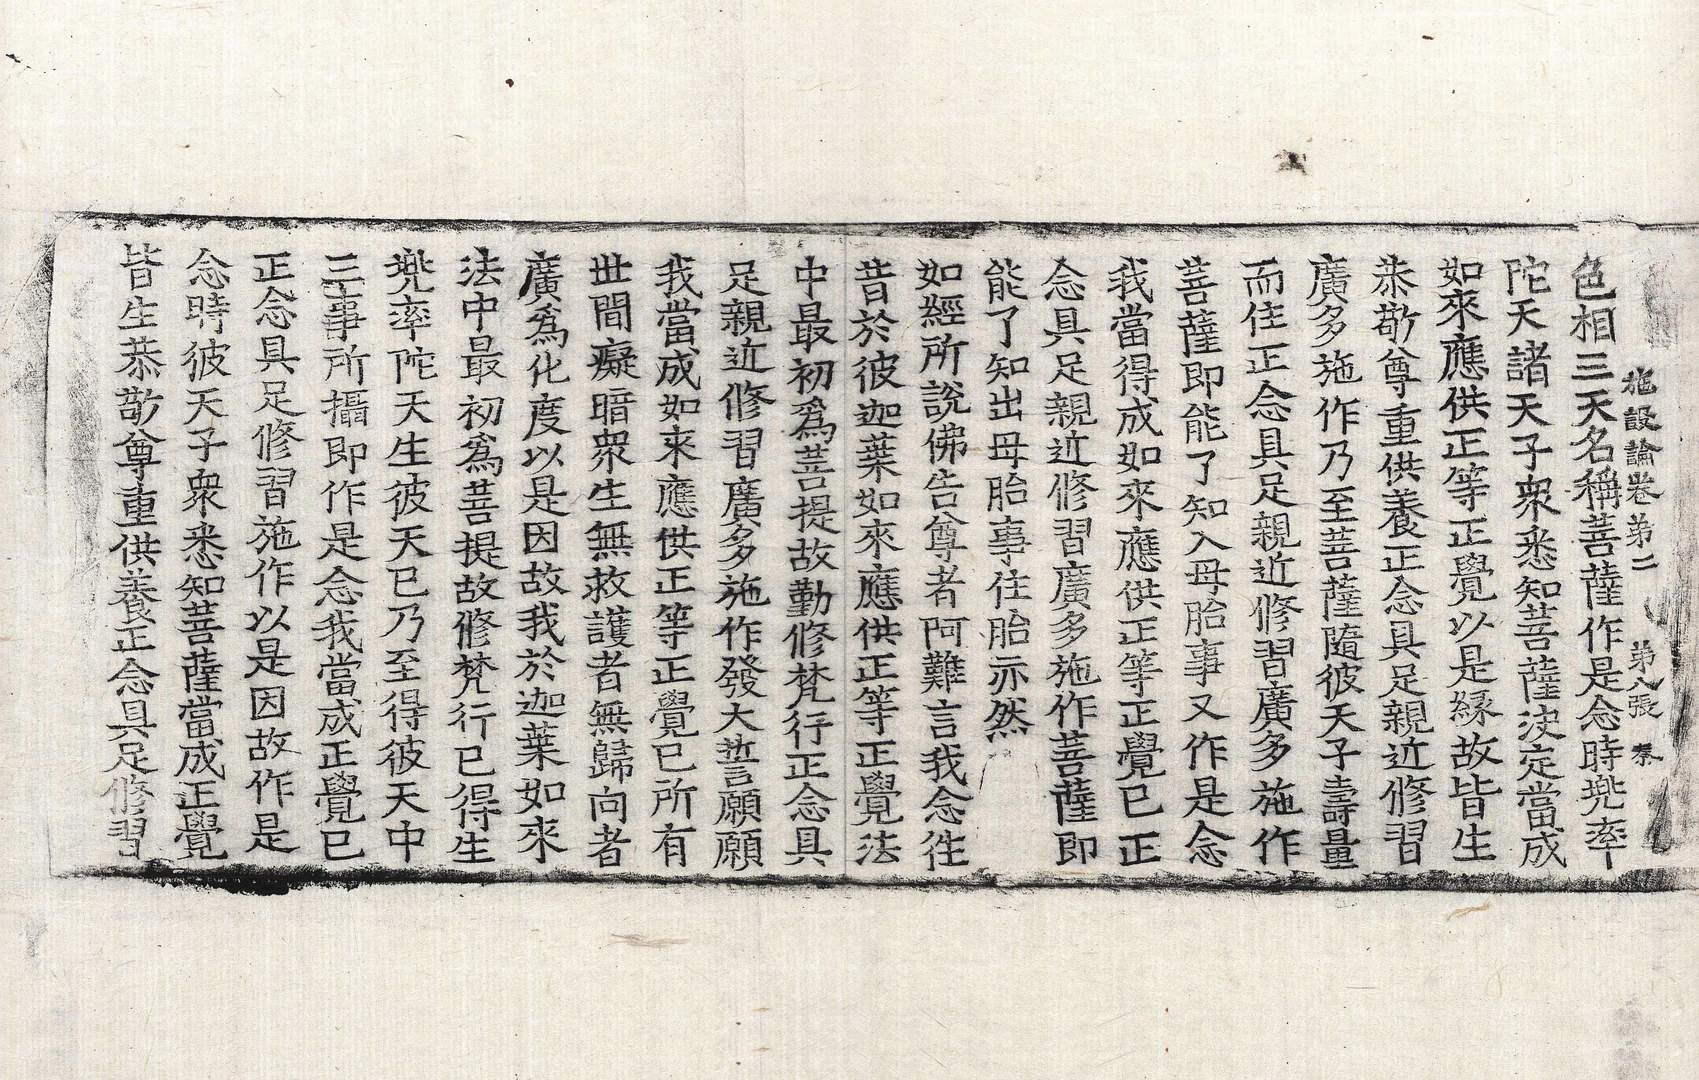 施設論卷第二 第八張 㮈
色相三天名稱菩薩作是念時兠率
陀天諸天子衆悉知菩薩決定當成
如來應供正等正覺以是緣故皆生
恭敬尊重供養正念具足親近修習
廣多施作乃至菩薩隨彼天子壽量
而住正念具足親近修習廣多施作
菩薩即能了知入母胎事又作是念
我當得成如來應供正等正覺已正
念具足親近修習廣多施作菩薩即
能了知出母胎事住胎亦然
如經所說佛告尊者阿難言我念徃
昔於彼迦葉如來應供正等正覺法
中最初爲菩提故勤修梵行正念具
足親近修習廣多施作發大誓願願
我當成如來應供正等正覺已所有
世間癡暗衆生無救護者無歸向者
廣爲化度以是因故我於迦葉如來
法中最初爲菩提故修梵行已得生
兠率陀天生彼天已乃至得彼天中
三事所攝即作是念我當成正覺已
正念具足修習施作以是因故作是
念時彼天子衆悉知菩薩當成正覺
皆生恭敬尊重供養正念具足修習